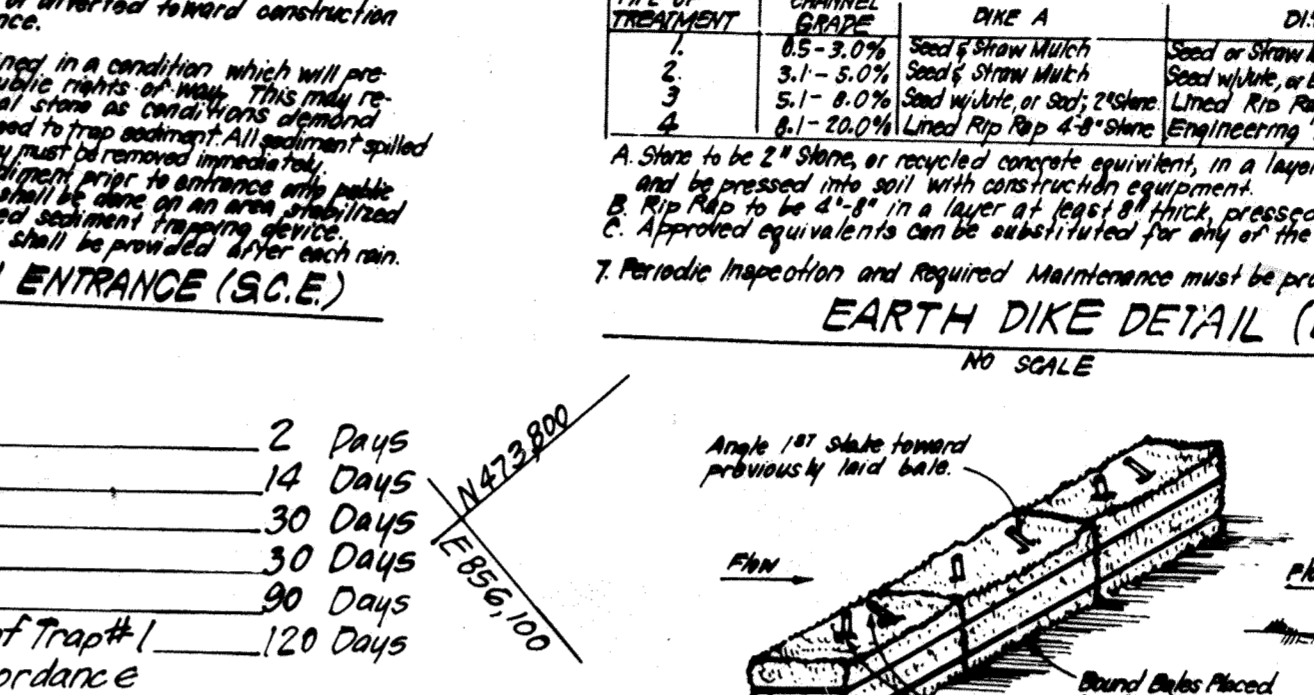 or diverted toward construction
nce.
ned in a condition which will pre-
ublic rights of way. This may re-
al stone as conditions demand
sed to trap sediment. All sediment spilled
y must be removed immediately.
diment prior to entrance onto public
shall be done on an area stabilized
ed sediment trapping device.
shall be provided after each rain.
ENTRANCE (S.C.E.)
TYPE OF TREATMENT CHANNEL GRADE DIKE A
1. 0.5-3.0% Seed & Straw Mulch Seed or Straw
2. 3.1-5.0% Seed & Straw Mulch Seed w/Jute, or
3 5.1-8.0% Seed w/Jute, or Sod; 2" Stone Lined Rip Rap
4 8.1-20.0% Lined Rip Rap 4-8" Stone Engineering
A. Stone to be 2" Stone, or recycled concrete equivilent, in a layer
and be pressed into soil with construction equipment.
B. Rip Rap to be 4"-8" in a layer at least 8" thick, pressed
C. Approved equivalents can be substituted for any of the
7. Periodic Inspection and Required Maintenance must be pro
EARTH DIKE DETAIL (
NO SCALE
2 Days
14 Days
30 Days
30 Days
90 Days
of Trap #1 120 Days
ordance
N 473,800
E 856,100
Angle 1ST stake toward
previously laid bale.
Flow
Bound Bales Placed